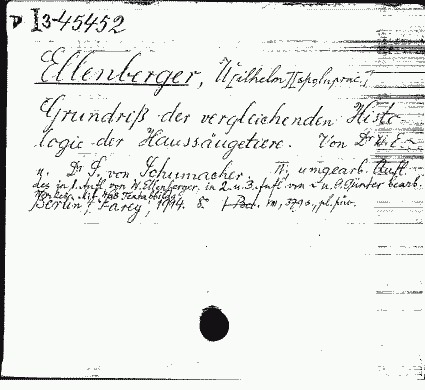 I3-45452
Ellenberger, W[ilhelm]
Grundriß der vergleichenden Histo-
logie der Haussäugetiere. Von Dr W. E~
u. Dr S. von Schumacher. 4., umgearb. Aufl.
des in 1. Aufl. von W. Ellenberger, in 2. u. 3. Aufl. von ~ u. G. Günter bearb.
Mit Textabbildg.
Berlin, Parey, 1914. 8°